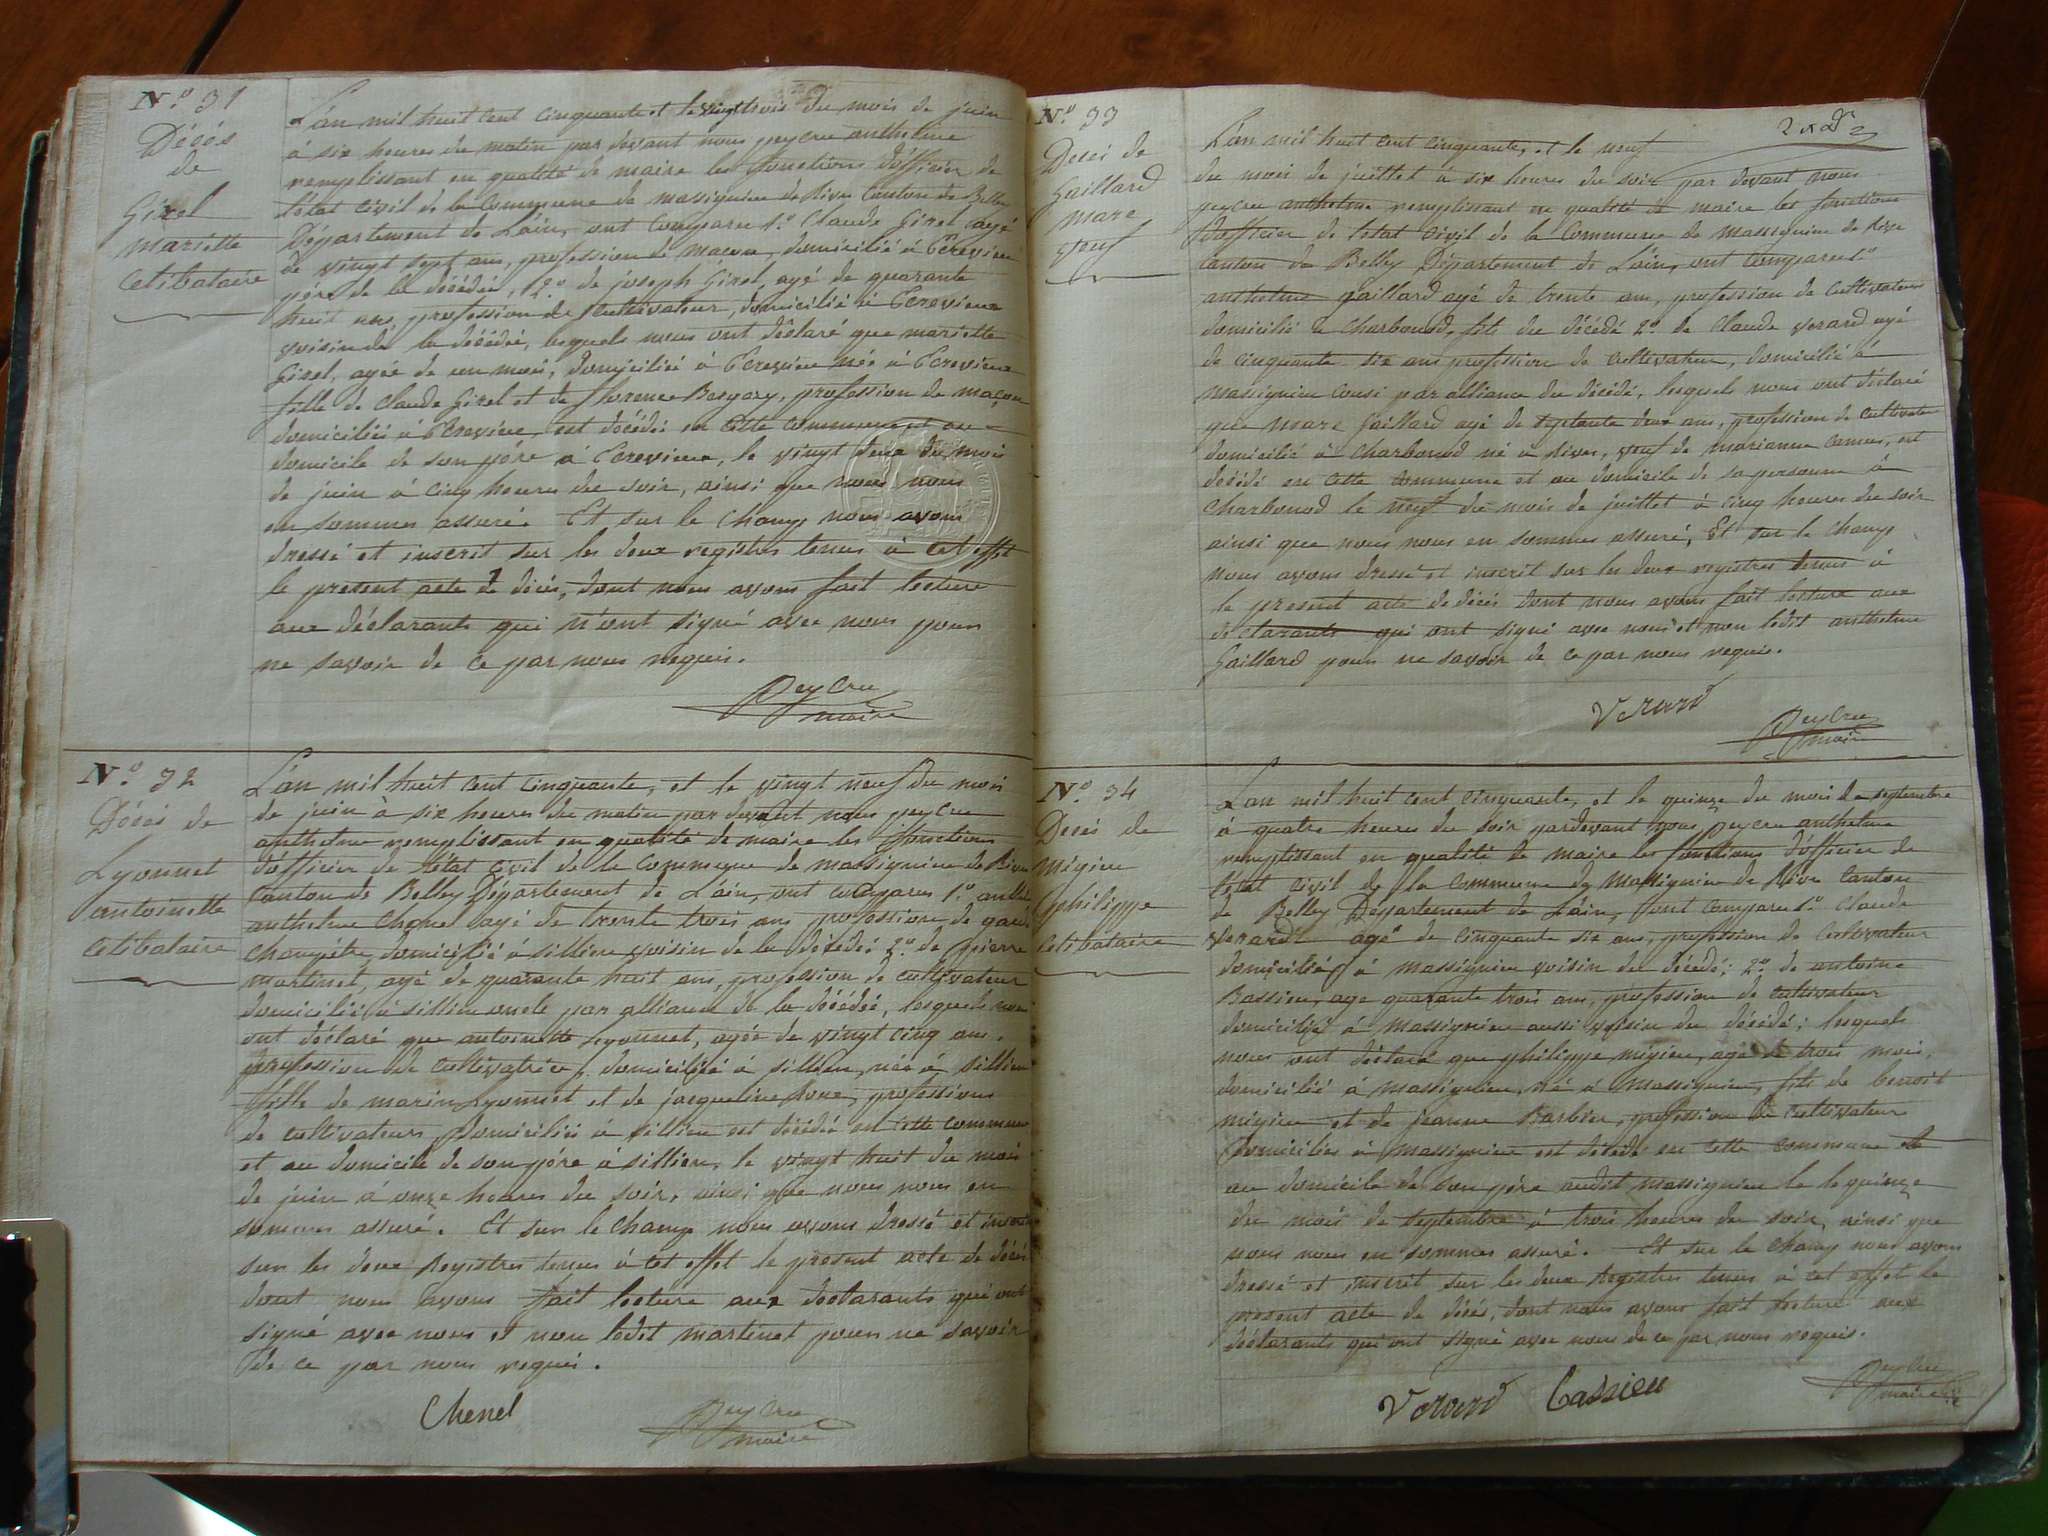 N.º 31
Décés
de
Girel
mariette
Celibataire
L'an mil huit cent cinquante et le vingt trois du mois de juin
à six heures du matin par devant nous peycru anthelme
remplissant en qualité de maire les fonctions d'officier de
l'état civil de la Commune de massignieu de Rive Canton de Belley
Département de L'ain, ont comparu 1.º Claude Girel agé
de vingt sept ans, profession de maçon, domicilié à
pére de la décédée, 2.º de joseph Girel, agé de quarante
huit ans, profession de Cultivateur, domicilié à
voisin de la décédée, lesquels nous ont déclaré que mariette
Girel, agée de un mois, domiciliée à née à
fille de Claude Girel et de florence profession de maçon
domiciliés à est décédée en cette commune et au
domicile de son pére à le vingt deux du mois
de juin à cinq heures du soir, ainsi que nous nous
en sommes assuré. Et sur le champ nous avons
dressé et inscrit sur les deux registres tenus à cet effet
le present acte de décés, dont nous avons fait lecture
aux déclarants qui n'ont signé avec nous pour
ne savoir de ce par nous requis.
Peycru
maire
N.º 32
Décés de
Lyonnet
antoinette
Celibataire
L'an mil huit cent cinquante, et le vingt neuf du mois
de juin à six heures du matin par devant nous peycru
anthelme remplissant en qualité de maire les fonctions
d'officier de l'état civil de la commune de massignieu de Rive
Canton de Belley Département de L'ain, ont comparu 1.º
anthelme agé de trente trois ans profession de garde
Champétre, domicilié à sillieu voisin de la décédée 2.º de pierre
martinet, agé de quarante huit ans, profession de cultivateur
domicilié à sillieu oncle par alliance de la décédée, lesquels nous
ont déclaré que antoinette Lyonnet, agée de vingt cinq ans,
profession de cultivatrice, domiciliée à sillieu, née à sillieu
fille de marin Lyonnet et de jacqueline profession
de cultivateurs domiciliés à sillieu est décédée en cette commune
et au domicile de son pére à sillieu, le vingt huit du mois
de juin à onze heures du soir, ainsi que nous nous en
sommes assuré. Et sur le champ nous avons dressé et inscrit
sur les deux Registres tenus à cet effet le present acte de décés
dont nous avons fait lecture aux declarants qui ont
signé avec nous et non ledit martinet pour ne savoir
de ce par nous requis.
Chenel
Peycru
maire
N.º 33
Decés de
Gaillard
Marc
veuf
L'an mil huit cent cinquante, et le neuf
du mois de juillet à six heures du soir par devant nous
peycru anthelme remplissant en qualité de maire les fonctions
d'officier de l'état civil de la Commune de massignieu de Rive
Canton de Belley Département de L'ain, ont comparu 1.º
anthelme gaillard agé de trente ans, profession de cultivateur
domicilié à Charbonod, fils du décédé 2.º de Claude verard agé
de cinquante six ans profession de cultivateur, domicilié à
massignieu cousi par alliance du décédé, lesquels nous ont déclaré
que marc gaillard agé de septante deux ans, profession de cultivateur
domicilié à Charbonod né à veuf de marianne camus, est
décédé en cette commune et au domicile de sa personne à
Charbonod le neuf du mois de juillet à cinq heures du soir
ainsi que nous nous en sommes assuré, Et sur le champ
nous avons dressé et inscrit sur les deux registres tenus à
le present acte de décés dont nous avons fait lecture aux
declarants qui ont signé avec nous et non ledit anthelme
Gaillard pour ne savoir de ce par nous requis.
Verard
Peycru
maire
N.º 34
Decés de
Migieu
philippe
Celibataire
L'an mil huit cent cinquante, et le quinze du mois de septembre
à quatre heures du soir pardevant nous peycru anthelme
remplissant en qualité de maire les fonctions d'officier de
l'état civil de la commune de Massignieu de Rive Canton
de Belley Département de L'ain, sont comparu 1.º Claude
Verard agé de cinquante six ans, profession de Cultivateur
domicilié à massignieu voisin du décédé; 2.º de antoine
Bassieu, age quarante trois ans, profession de cultivateur
domicilié à massignieu aussi voisin du décédé; lesquels
nous ont déclaré que philippe migieu, agé de trois mois,
domicilié à massignieu, né à Massignieu, fils de benoit
migieu et de jeanne Barbier, profession de cultivateur
domiciliés à massignieu est décédé en cette commune et
au domicile de son pére audit massignieu le le quinze
du mois de septembre à trois heures du soir, ainsi que
nous nous en sommes assuré. Et sur le champ nous avons
dressé et inscrit sur les deux Registres tenus à cet effet le
present acte de décés, dont nous avons fait lecture aux
déclarants qui ont signé avec nous de ce par nous requis.
Verard Bassieu
Peycru
maire